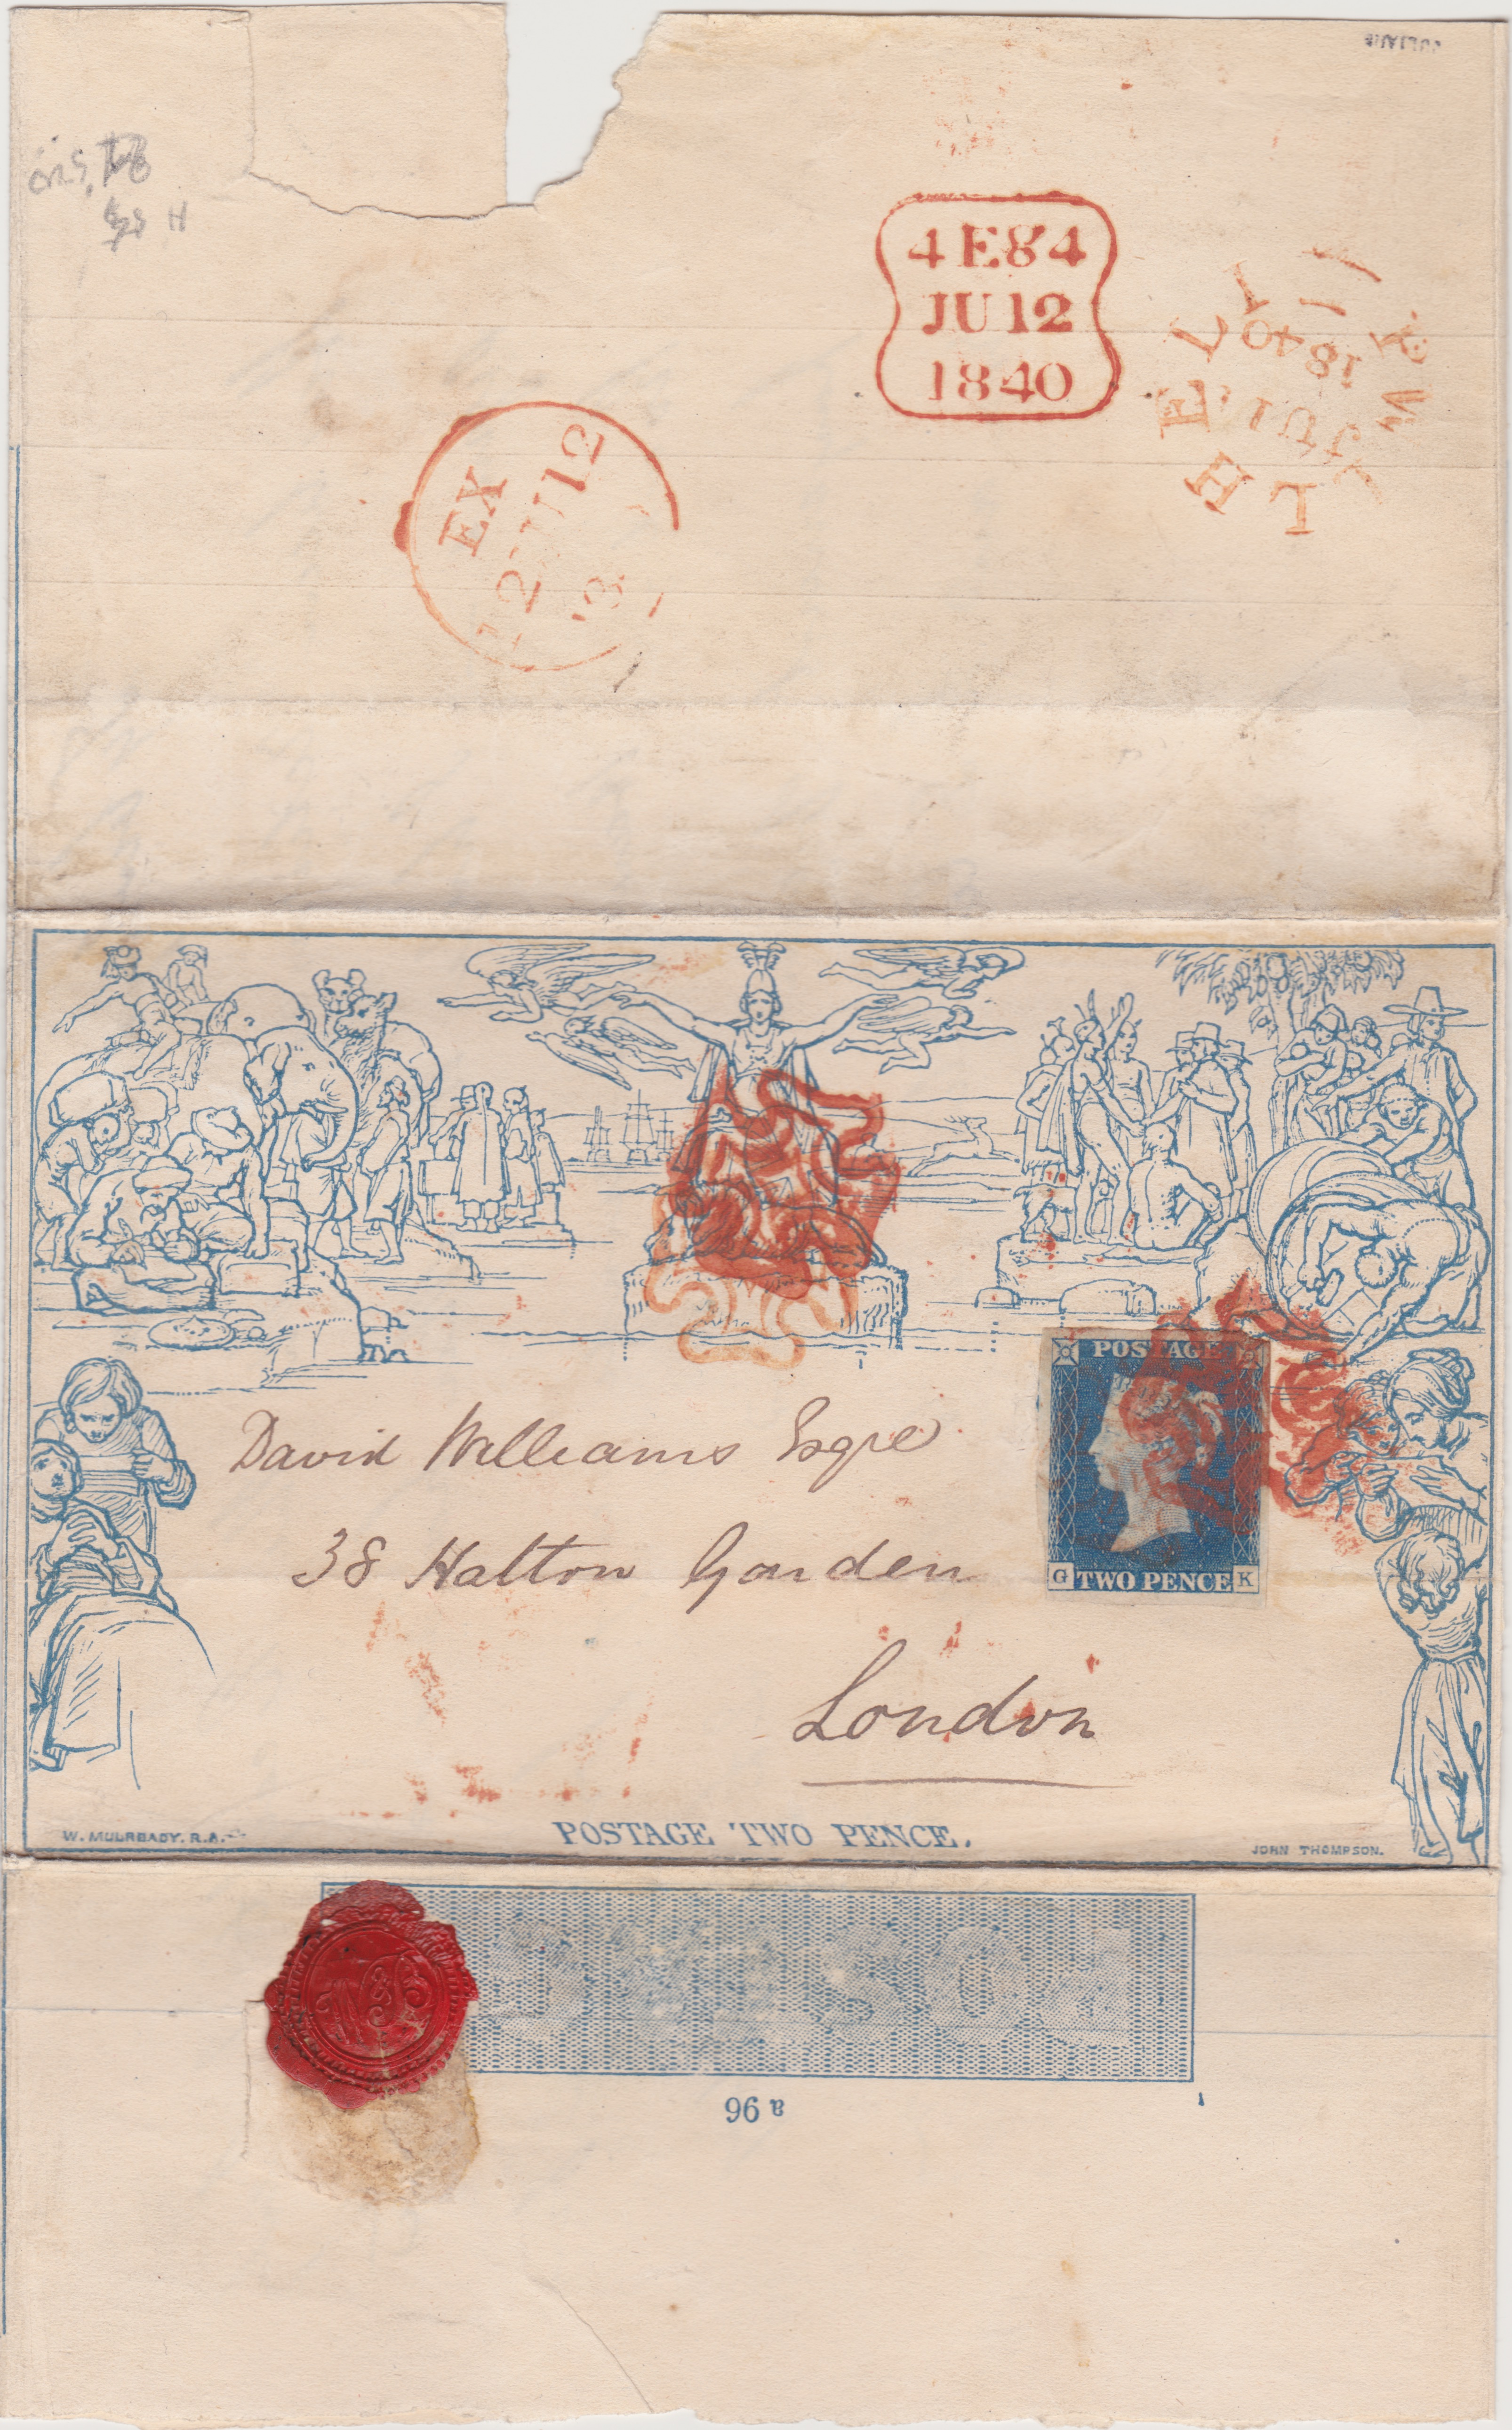 4 E 84
JU 12
1840
PWLLHELY
JU 11
1840
EX
12 JU 12
POSTAGE
David Williams Esqre
38 Hatton Garden
G TWO PENCE K
London
W. MULREADY. R.A.
POSTAGE TWO PENCE.
JOHN THOMPSON.
POSTAGE
W&B
a 96